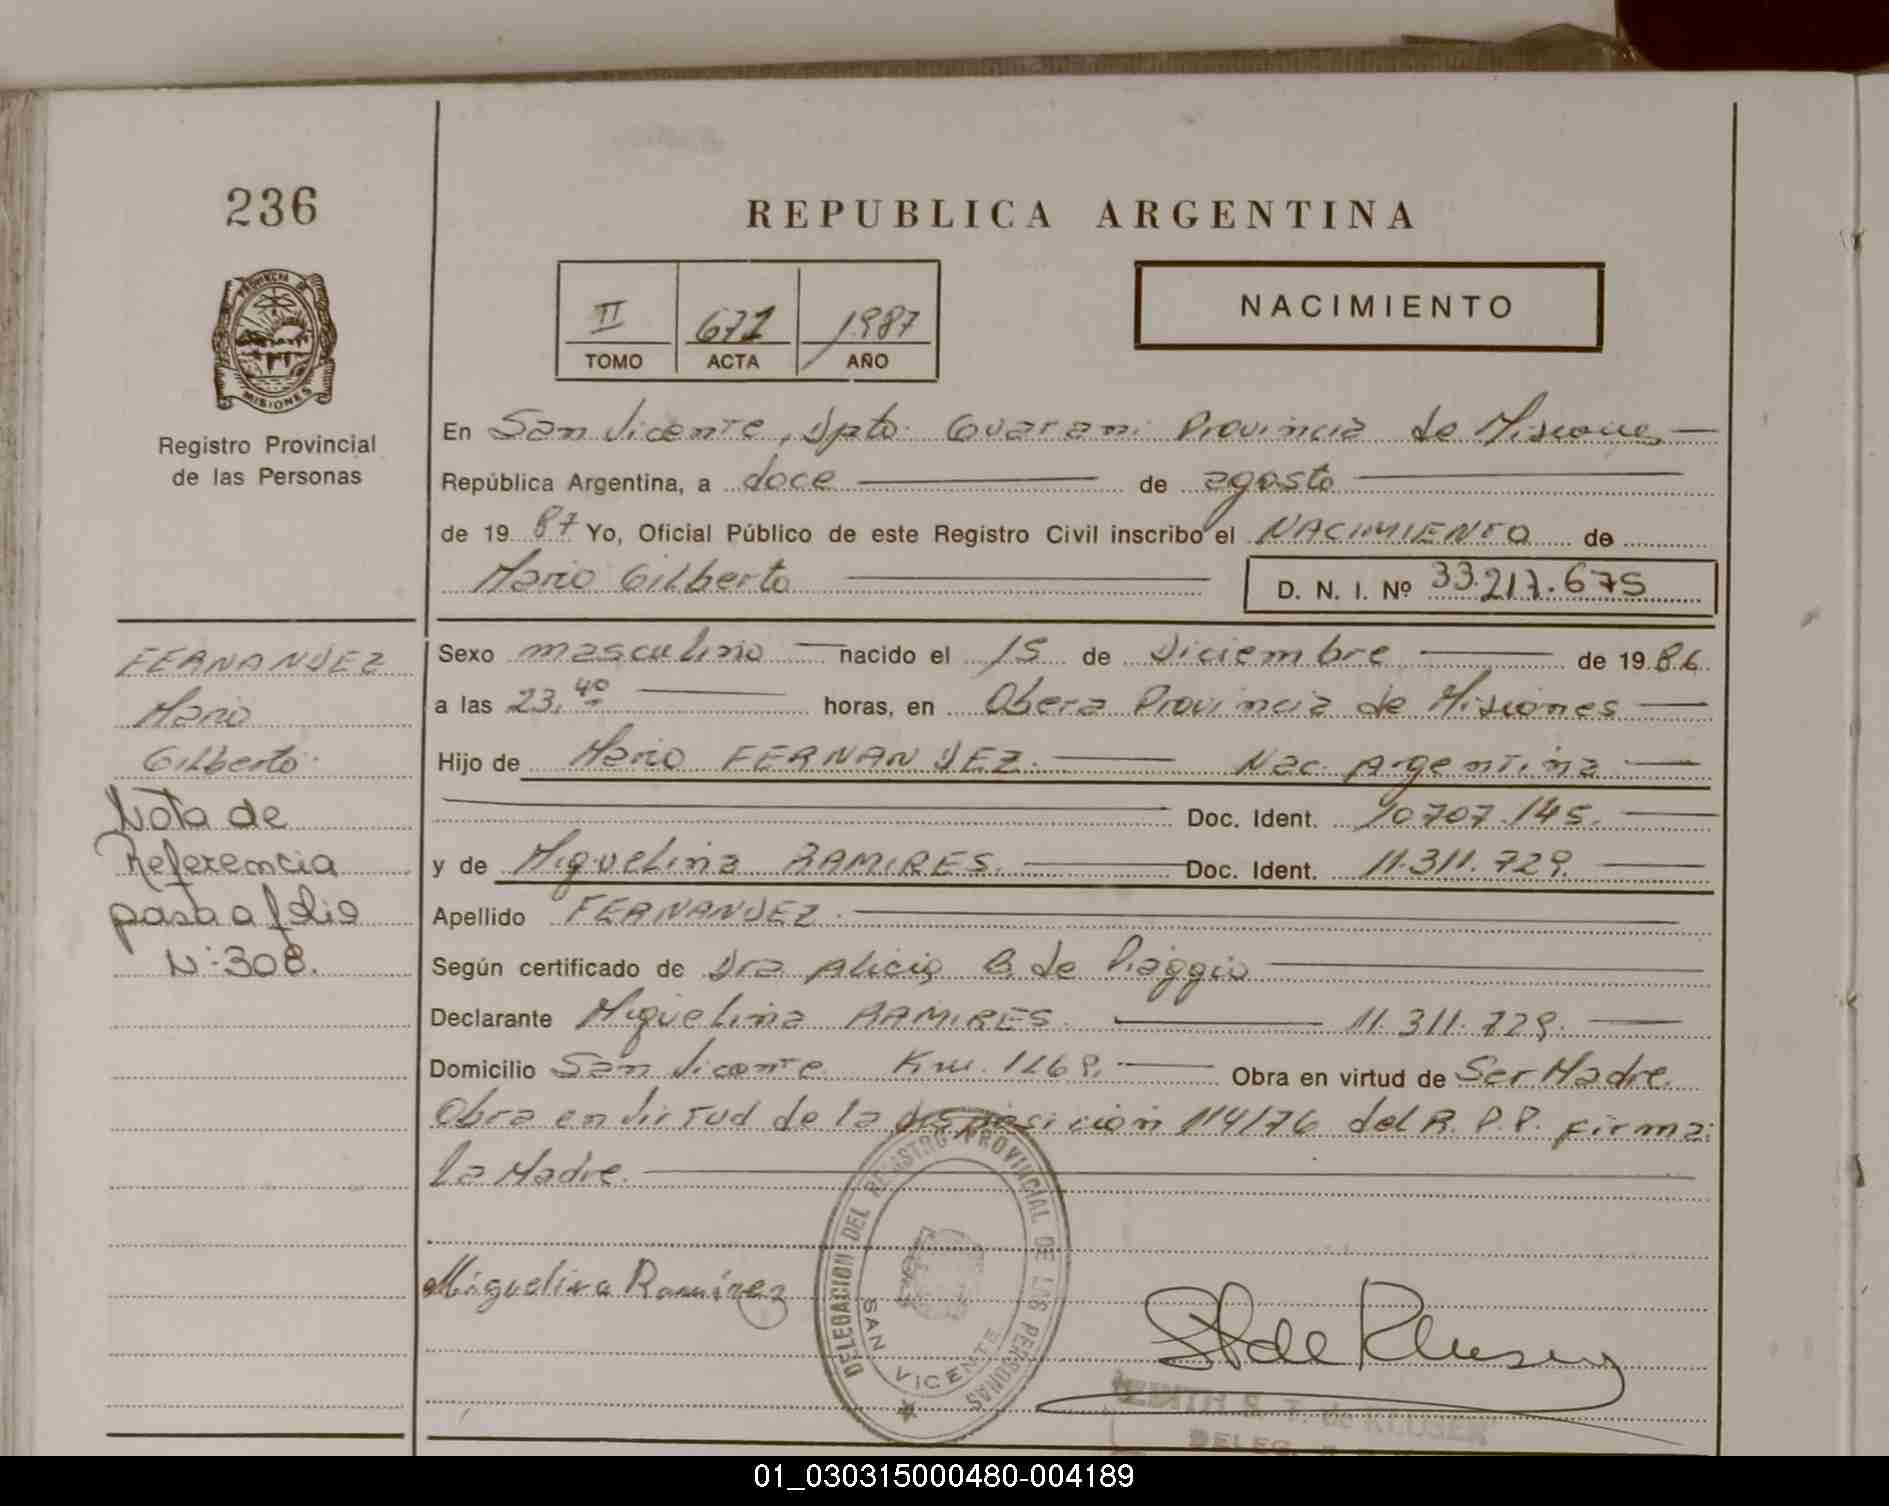 236
REPUBLICA ARGENTINA
PROVINCIA DE
MISIONES
Registro Provincial
de las Personas
II 671 1987
TOMO ACTA AÑO
NACIMIENTO
En San Vicente, Dpto. Guarani Provincia de Misiones
República Argentina, a doce de agosto
de 19 87 Yo, Oficial Público de este Registro Civil inscribo el NACIMIENTO de
Mario Gilberto D. N. I. Nº 33.217.675
FERNANDEZ
Mario
Gilberto
Nota de
Referencia
pasa a folio
Nº 308.
Sexo masculino nacido el 15 de Diciembre de 19 86.
a las 23,40 horas, en Obera Provincia de Misiones
Hijo de Mario FERNANDEZ. Nac. Argentina
Doc. Ident. 10.707.145.
y de Miguelina RAMIRES. Doc. Ident. 11.311.729.
Apellido FERNANDEZ.
Según certificado de Dra Alicia B. de Piaggio
Declarante Miguelina RAMIRES. 11.311.729.
Domicilio San Vicente Km. 1268. Obra en virtud de Ser Madre.
Obra en virtud de la disposicion 114/76 del R. P. P. firma:
la Madre.
Miguelina Ramírez
DELEGACION DEL REGISTRO PROVINCIAL DE LAS PERSONAS
SAN VICENTE
de KLUSER
DELEG.
01_030315000480-004189